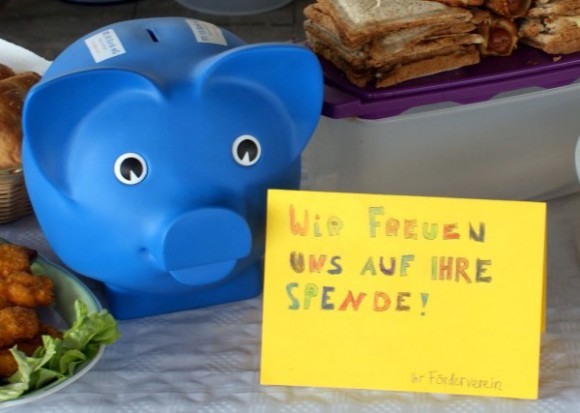 WiR FREUEN
UNS AUF IHRE
SPENDE!
Ihr Förderverein